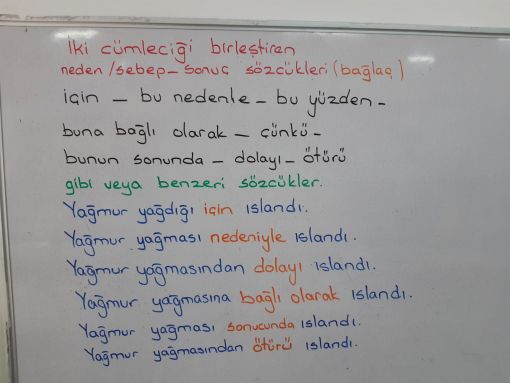 İki cümleciği birleştiren
neden/sebep-sonuç sözcükleri (bağlaç)
için - bu nedenle - bu yüzden -
buna bağlı olarak - çünkü -
bunun sonunda - dolayı - ötürü
gibi veya benzeri sözcükler.
Yağmur yağdığı için ıslandı.
Yağmur yağması nedeniyle ıslandı.
Yağmur yağmasından dolayı ıslandı.
Yağmur yağmasına bağlı olarak ıslandı.
Yağmur yağması sonucunda ıslandı.
Yağmur yağmasından ötürü ıslandı.